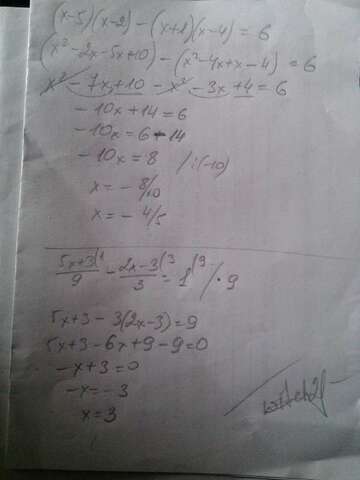 (x-5)(x-2)-(x+1)(x-4)=6
(x²-2x-5x+10)-(x²-4x+x-4)=6
x²-7x+10-x²-3x+4=6
-10x+14=6
-10x=6-14
-10x=8 /:(-10)
x=-8/10
x=-4/5
5x+3/9 - 2x-3/3 = 1 /·9
5x+3-3(2x-3)=9
5x+3-6x+9-9=0
-x+3=0
-x=-3
x=3